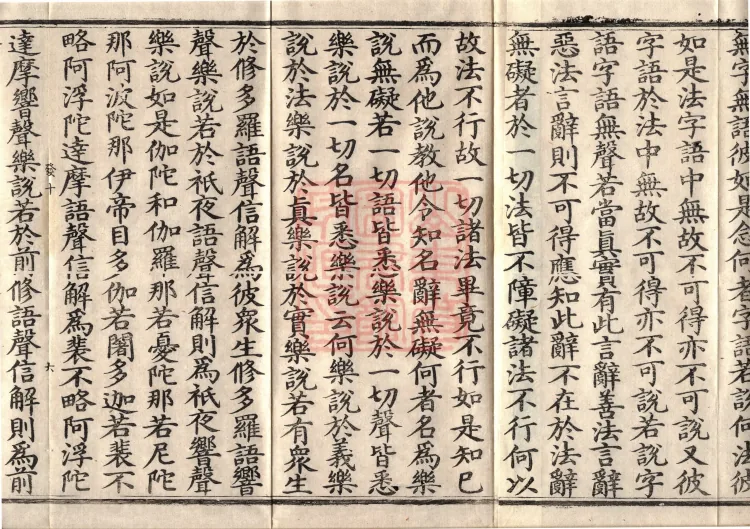 無字無語彼如是念何者字語若說何法彼
如是法字語中無故不可得亦不可說又彼
字語於法中無故不可得亦不可說若說字
語字語無聲若當眞實有此言辭善法言辭
惡法言辭則不可得應知此辭不在於法辭
無礙者於一切法皆不障礙諸法不行何以
故法不行故一切諸法畢竟不行如是知已
而爲他說教他令知名辭無礙何者名爲樂
說無礙若一切語皆悉樂說於一切聲皆悉
樂說於一切名皆悉樂說云何樂說於義樂
說於法樂說於眞樂說於實樂說若有衆生
於修多羅語聲信解爲彼衆生修多羅語響
聲樂說若於祇夜語聲信解則爲祇夜響聲
樂說如是伽陀和伽羅那若憂陀那若尼陀
那阿波陀那伊帝目多伽若闍多迦若裴不
略阿浮陀達摩語聲信解爲裴不略阿浮陀
發十 六
達摩響聲樂說若於前修語聲信解則爲前